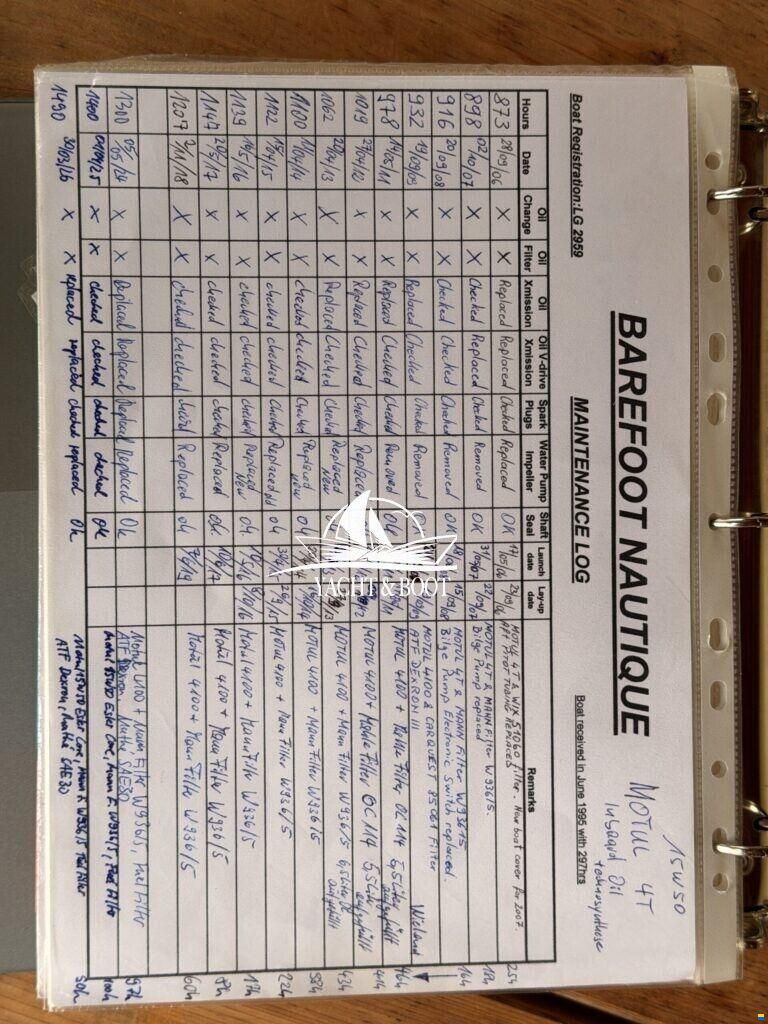 BAREFOOT NAUTIQUE
15W50
MOTUL 4T
Inboard Oil
technosynthese
Boat Registration:LG 2959
MAINTENANCE LOG
Boat received in June 1995 with 297hrs
Hours Date Oil Change Oil Filter Oil Xmission Oil V-drive Xmission Spark Plugs Water Pump Impeller Shaft Seal Launch date Lay-up date Remarks
873 28/09/06 X X Replaced Replaced Checked Replaced OK 17/05/06 MOTUL 4T & WIX 51060 filter. New boat cover for 2007. 25h
APA PITOT TUBING REPLACED
898 02/10/07 X X Checked Replaced Checked Removed OK 22/09/07 MOTUL 4T & MANN Filter W 936/5. 18h
Bilge Pump replaced
916 20/09/08 X X Checked Checked Checked Removed OK 15/09/08 MOTUL 4T & MANN Filter W936/5 16h
Bilge Pump Electronic Switch replaced.
932 19/09/09 X X Replaced Checked Checked Removed MOTUL 4100 & CARQUEST 85061 Filter Wieland
ATF DEXRON III
978 14/05/11 X X Replaced Checked Checked Removed OK MOTUL 4100 + Mann Filter OC 114 5,5 Liter aufgefüllt 46h
1019 27/04/12 X X Replaced Checked Checked Replaced MOTUL 4100 + Mahle Filter OC 114 5,5 Liter aufgefüllt 41h
1062 X X Replaced Checked Checked Replaced NEW MOTUL 4100 + Mann Filter W936/5 5,5 Liter Öl aufgefüllt 43h
1100 11/04/14 X X checked checked Checked Replaced new OK MOTUL 4100 + Mann Filter W936/5 38h
1122 X X checked checked Checked Replaced OK MOTUL 4100 + Mann Filter W936/5 22h
1139 X X checked checked checked replaced New OK Motul 4100 + Mann Filter W936/5 17h
1147 20/5/17 X X checked checked checked Replaced ok Motul 4100 + Mann Filter W936/5 8h
1207 X X checked checked Replaced ok 7/6/19 Motul 4100 + Mann Filter W936/5 60h
1300 05/05/24 X X Replaced Replaced Replaced Replaced Ok Motul 4100 + Mann Filter W936/5, Fuel Filter 97h
ATF Dexron Mathé SAE30
1400 04/04/25 X X checked checked checked checked ok Motul 15W50 Ester Core, Mann F. W936/5, Fuel Filter 100h
1490 30/03/26 X X replaced replaced checked replaced Ok Motul 15W50 Ester Core, Mann F. W936/5 Fuel Filter 90h
ATF Dexron, Mathé SAE30
YACHT & BOOT